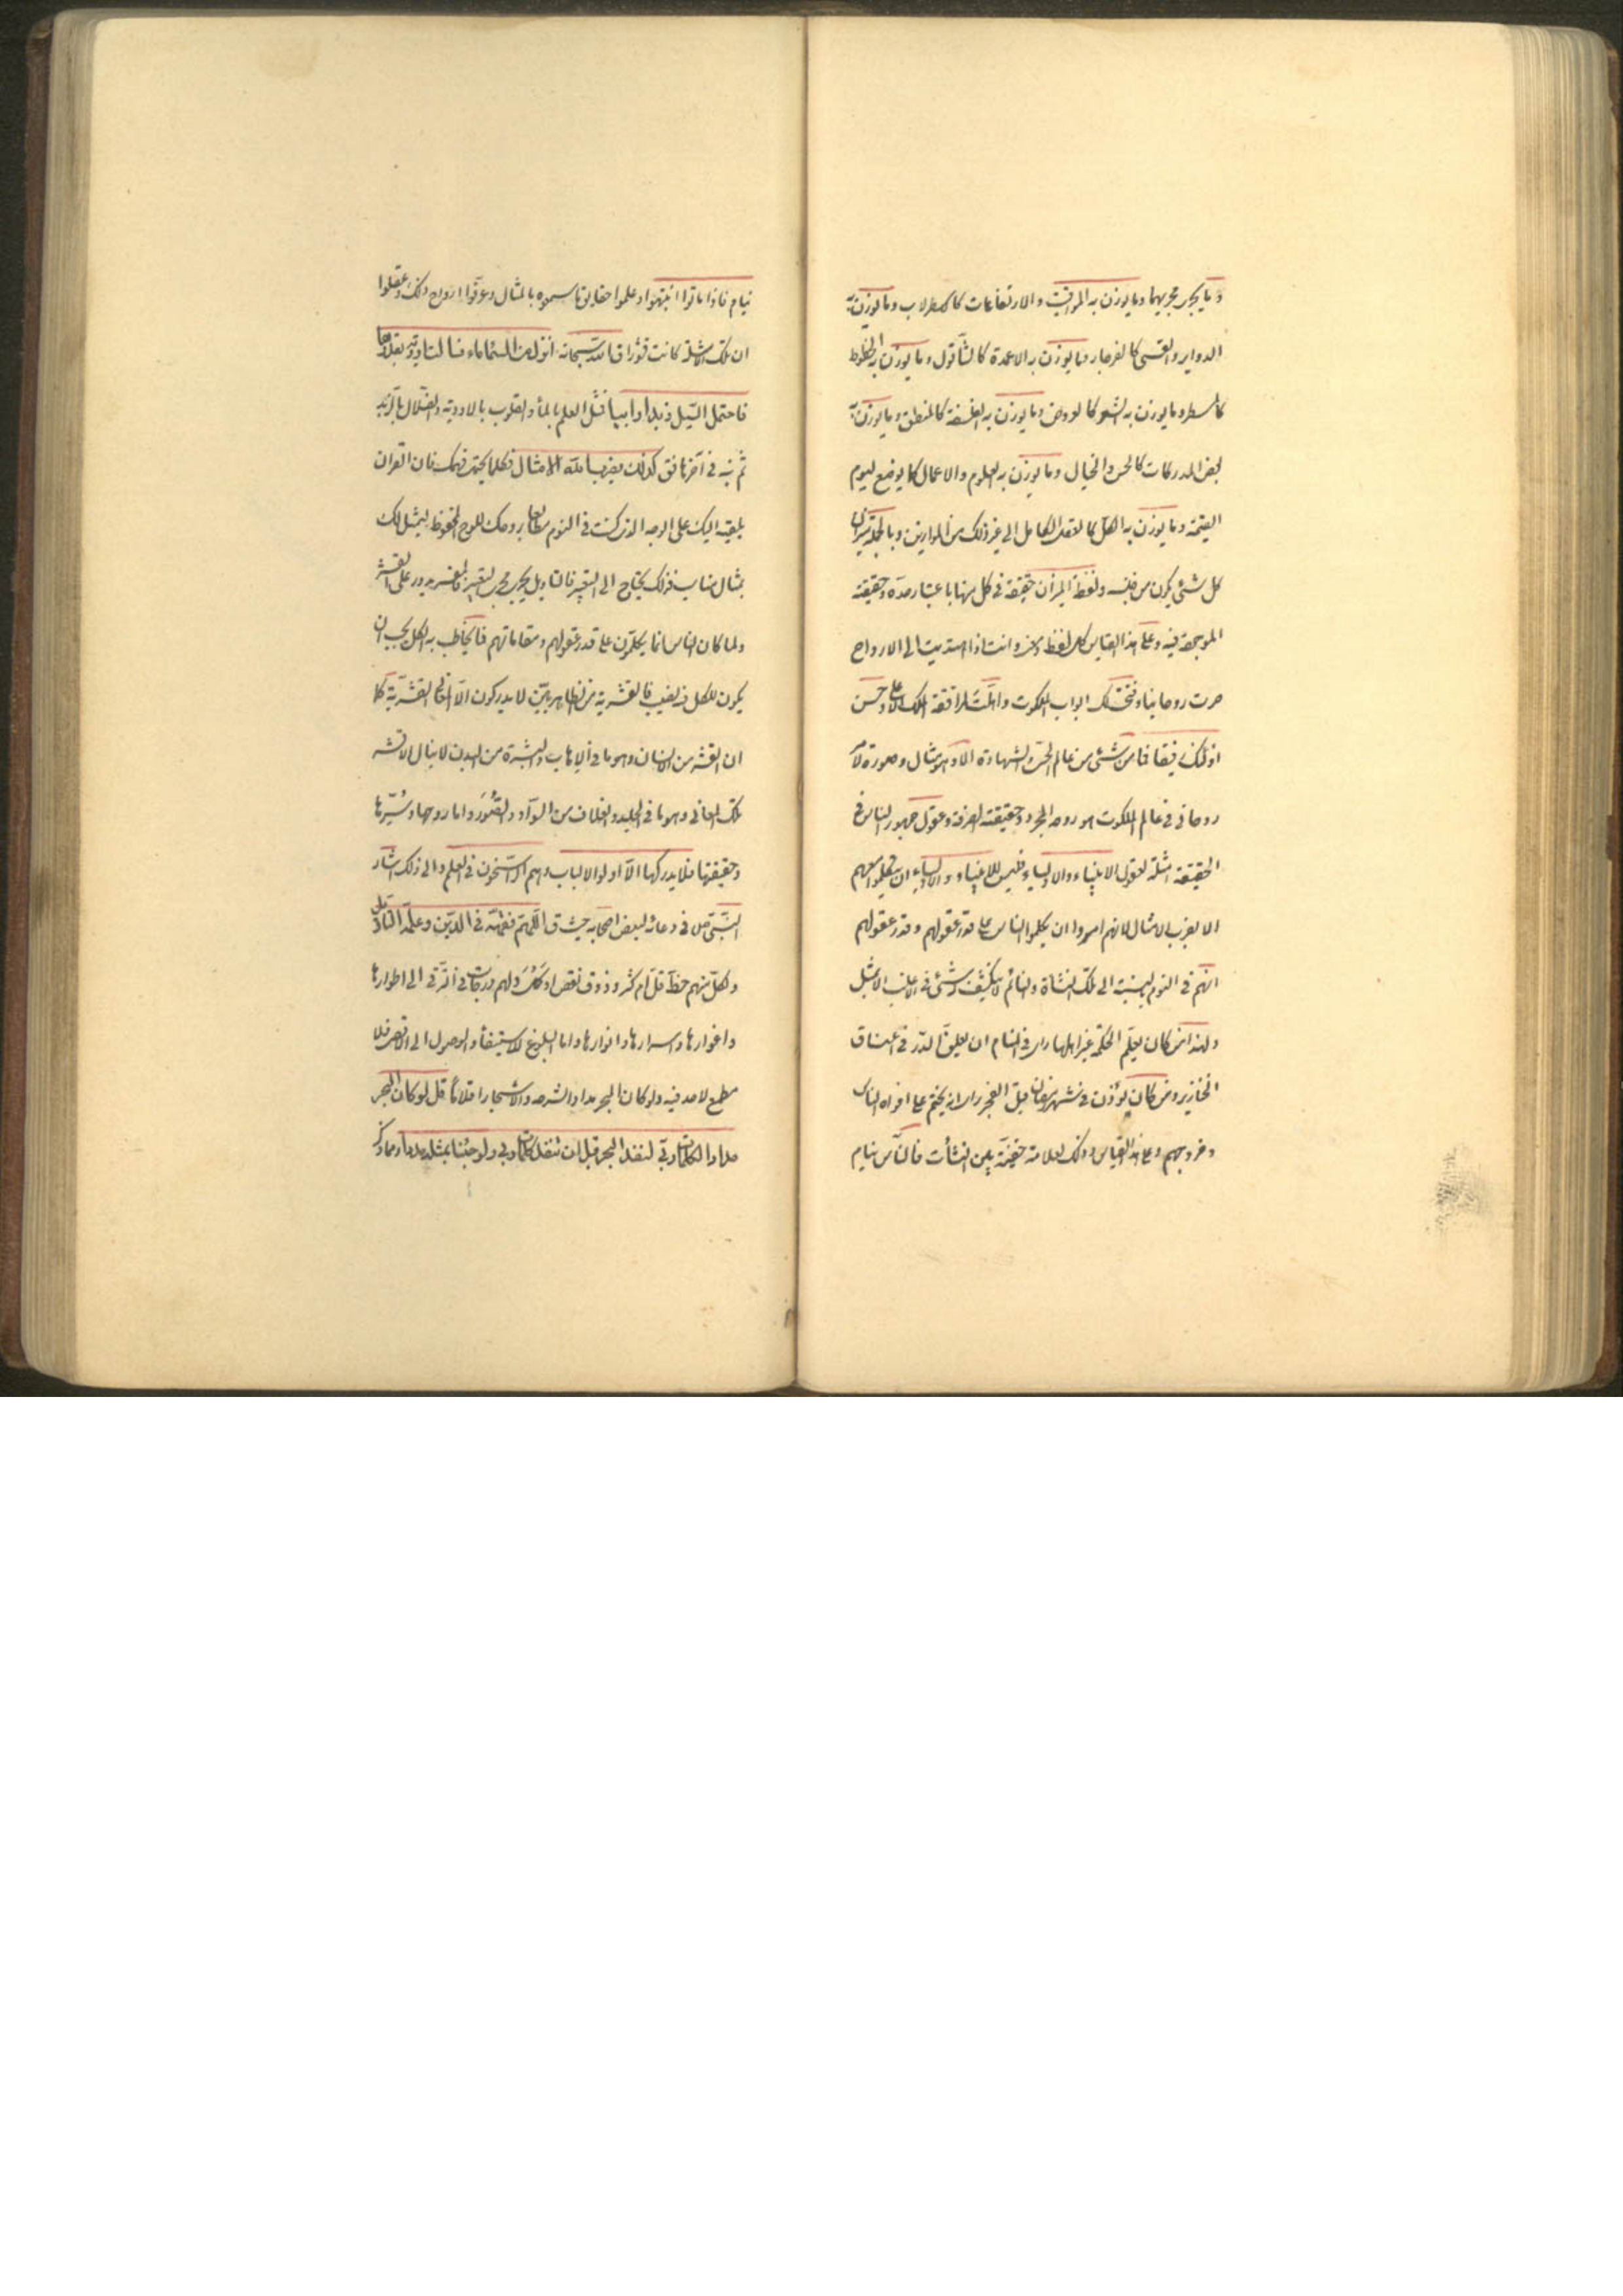 وما يجرى مجريهما وما يوزن به المواقيت والارتفاعات كالاسطرلاب وما يوزن به
الدواير والقسى كالفرجار وما يوزن به الاعمدة كالشاقول وما يوزن به الخطوط
كالمسطر وما يوزن به الشعر كالعروض وما يوزن به الفلسفة كالمنطق وما يوزن به
بعض المدركات كالحس والخيال وما يوزن به العلوم والاعمال كما يوضع ليوم
القيمة وما يوزن به الكل كالعقل الكامل الى غير ذلك من الموازين وبالجملة ميزان
كل شئ يكون من جنسه ولفظة الميزان حقيقة فى كل منها باعتبار حده وحقيقته
الموجودة فيه وعلى هذا القياس كل لفظ ومعنى وانت اذا اهتديت الى الارواح
صرت روحانيا وفتحت لك ابواب الملكوت واهلت لمرافقة الملاء الاعلى وحسن
اولئك رفيقا فما من شئ من عالم الحس والشهادة الا وهو مثال وصورة لامر
روحانى فى عالم الملكوت هو روحه المجرد وحقيقته الصرفة وعقول جمهور الناس فى
الحقيقة امثلة لعقول الانبياء والاولياء فليس للانبياء والاولياء ان يتكلموا معهم
الا بضرب الامثال لانهم امروا ان يكلموا الناس على قدر عقولهم وقدر عقولهم
انهم فى النوم بالنسبة الى تلك النشاة والنائم لا ينكشف له شئ فى الاغلب الا بمثل
ولهذا من كان يعلم الحكمة غير اهلها راى فى المنام ان يعلق الدر فى اعناق
الخنازير ومن كان يؤذن فى شهر رمضان قبل الفجر راى انه يختم على افواه الناس
وفروجهم وعلى هذا القياس وذلك لعلاقة خفية بين النشأت فالناس نيام
نيام فاذا ماتوا انتبهوا وعلموا حقايق ما سمعوه بالمثال وعرفوا ارواح ذلك وعقلوا
ان تلك الامثلة كانت قشورا قال الله سبحانه انزل من السماء ماء فسالت اودية بقدرها
فاحتمل السيل زبدا رابيا فمثل العلم بالماء والقلوب بالاودية والضلال بالزبد
ثم نبه فى آخرها فق كذلك يضرب الله الامثال فكلما لا يحتمله فهمك فان القران
يلقيه اليك على الوجه الذى كنت فى النوم مطالعا بروحك للوح المحفوظ ليتمثل لك
بمثال مناسب فذلك يحتاج الى التعبير فالتاويل يجرى مجرى التعبير فالمفسر يدور على القشر
ولما كان الناس انما يكلمون على قدر عقولهم ومقاماتهم فما يخاطب به الكل يجب ان
يكون للكل فيه نصيب فالقشرية من الظاهريين لا يدركون الا المعانى القشرية كما
ان القشر من الانسان وهو ما فى الاهاب والبشرة من البدن لا ينال الا قشر
تلك المعانى وهو ما فى الجلد والغلاف من السواد والصور واما روحها وسرها
وحقيقتها فلا يدركها الا اولوا الالباب وهم الراسخون فى العلم والى ذلك اشار
النبى ص فى دعائه لبعض اصحابه حيث ق اللهم فقهه فى الدين وعلمه التاويل
ولكل منهم حظ قل ام كثر وذوق نقص او كمل ولهم درجات فى الترقى الى اطوارها
واغوارها واسرارها وانوارها واما البلوغ للاستيفاء والوصول الى الاقصى فلا
مطمع لاحد فيه ولو كان البحر مدادا لشرحه والاشجار اقلاما قل لو كان البحر
مدادا لكلمات ربى لنفد البحر قبل ان تنفد كلمات ربى ولو جئنا بمثله مددا ومما ذكر